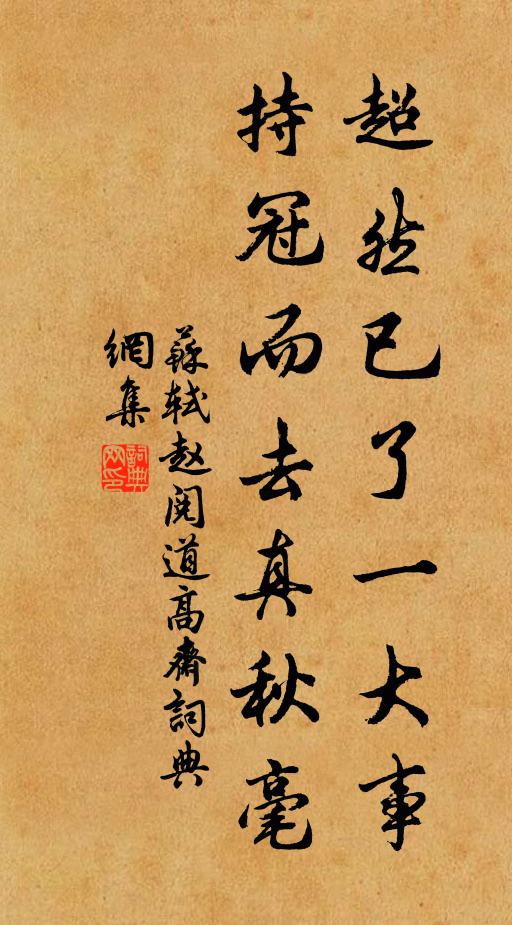 超然已了一大事
持冠而去真秋毫
蘇軾赵阅道高齋詞典
網集
詞典
网印